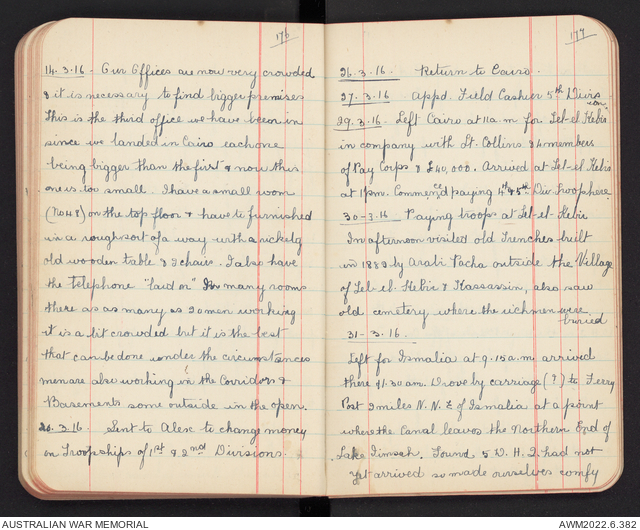 176
14.3.16 - Our Offices are now very crowded
& it is necessary to find bigger premises
This is the third office we have been in
since we landed in Cairo each one
being bigger than the first & now this
one is too small. I have a small room
(No 48) on the top floor & have it furnished
in a rough sort of a way with a rickety
old wooden table & 2 chairs. I also have
the telephone "laid on" In many rooms
there as as many as 20 men working
it is a bit crowded but it is the best
that can be done under the circumstances
men are also working in the Corridors &
Basements some outside in the open.
20.3.16. Sent to Alex to change money
on Troopships of 1st & 2nd Divisions.
177
26.3.16. Return to Cairo.
27.3.16 Appd. Field Cashier 5th Divis
ion.
29.3.16. Left Cairo at 11 a.m. for Tel-el Kebir
in company with Lt. Collins & 4 members
of Pay Corps & £40,000. Arrived at Tel-el Kebir
at 1 pm. Commenced paying 4th & 5th Div. troops here.
30-3.16 Paying troops at Tel-el-Kebir
In afternoon visited old Trenches built
in 1882 by Arabi Pacha outside the Village
of Tel-el-Kebir & Kassassin, also saw
old cemetery where the richmen were
buried
31-3.16.
Left for Ismalia at 9.15 a.m. arrived
there 11.30 am. Drove by carriage (?) to Ferry
Post 2 miles N.N.E of Ismalia at a point
where the Canal leaves the Northern End of
Lake Timsah. Found 5 D.H.Q. had not
yet arrived so made ourselves comfy
AUSTRALIAN WAR MEMORIAL
AWM2022.6.382